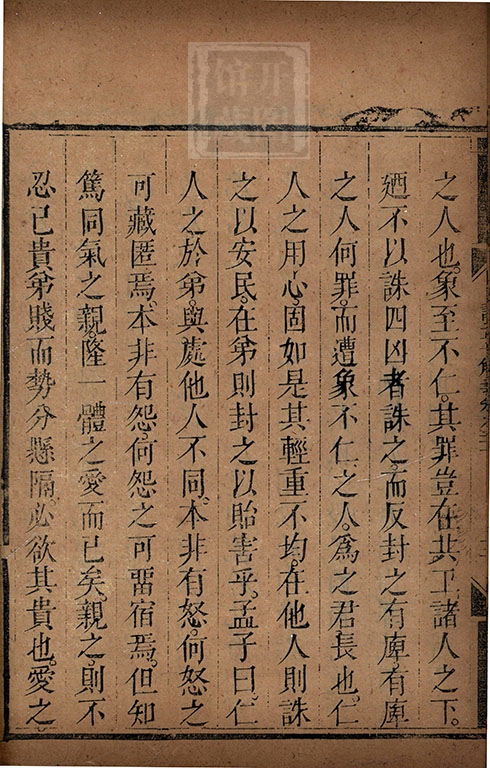 之人也。象至不仁。其罪豈在共工諸人之下。
廼不以誅四凶者誅之。而反封之有庳。有庳
之人何罪。而遭象不仁之人。爲之君長也。仁
人之用心。固如是其輕重不均。在他人則誅
之以安民。在弟則封之以貽害乎。孟子曰。仁
人之於弟。與處他人不同。本非有怒。何怒之
可藏匿焉。本非有怨。何怨之可畱宿焉。但知
篤同氣之親。隆一體之愛而已矣。親之。則不
忍已貴弟賤而勢分懸隔。必欲其貴也。愛之